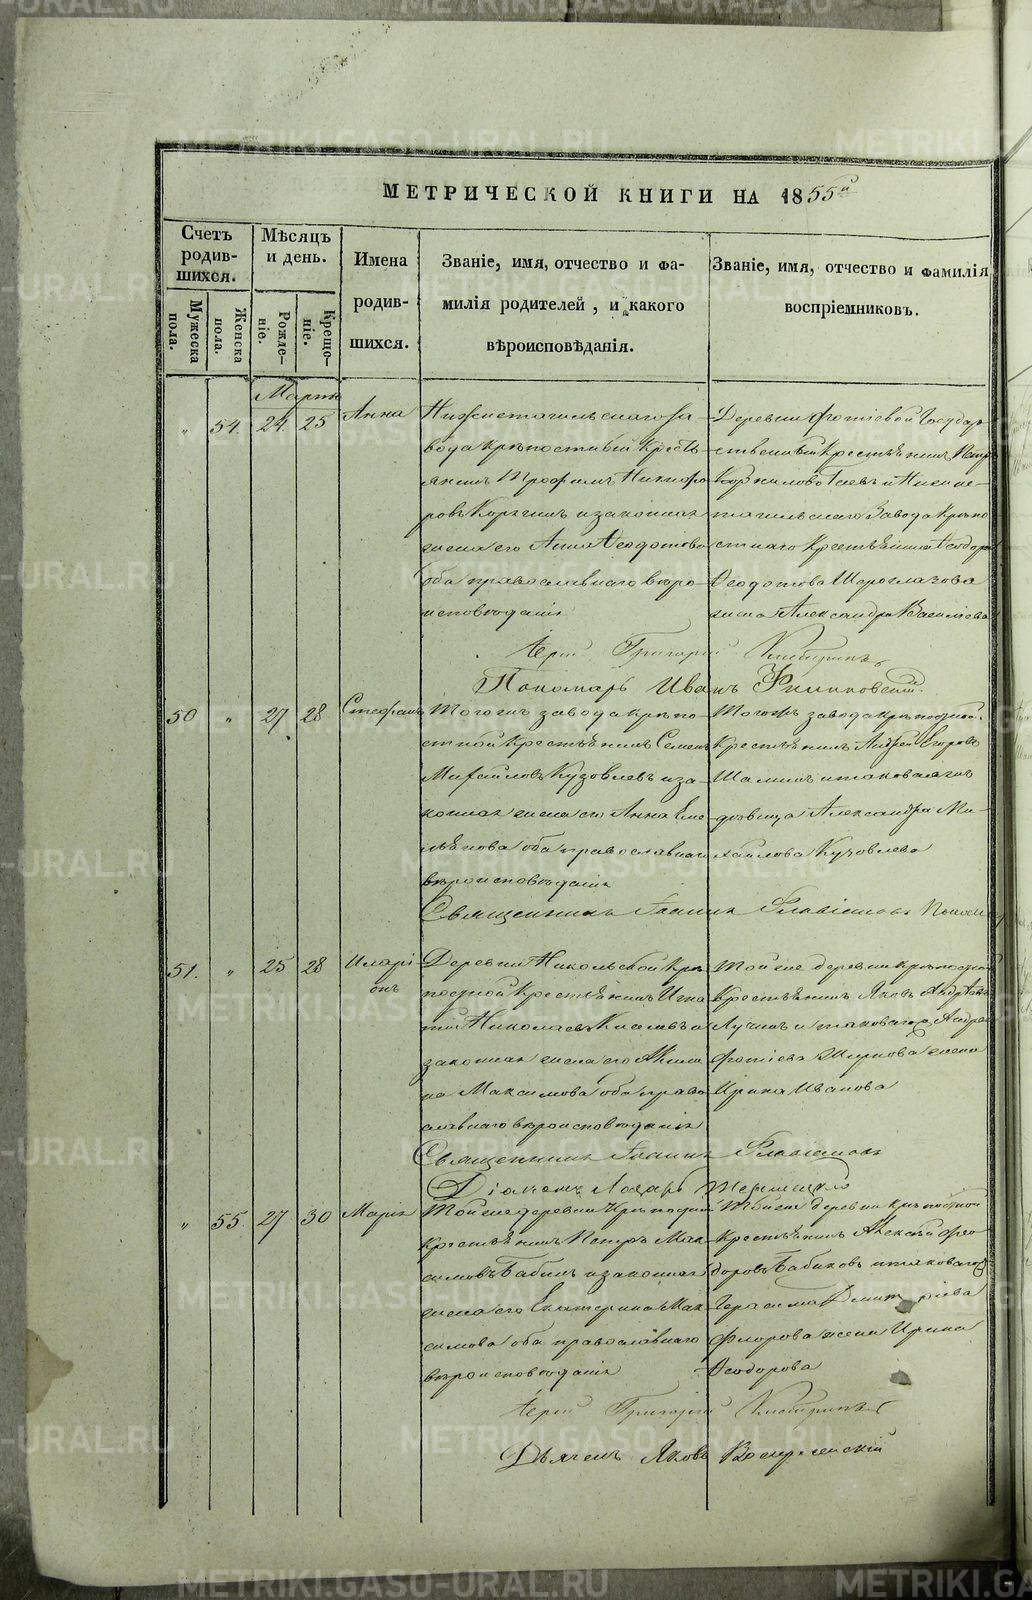 МЕТРИЧЕСКОЙ КНИГИ НА 1855й
Счетъ родив-шихся.
Мужеска пола.
Женска пола.
Мѣсяцъ и день.
Рожде-ніе.
Крещо-ніе.
Имена родив-шихся.
Званіе, имя, отчество и фа-
милія родителей, и какого
вѣроисповѣданія.
Званіе, имя, отчество и фамилія
воспріемниковъ.
Мартъ
" 54. 24 25 Анна
Нижнетагильскаго За-
вода крѣпостный кресть
янинъ Трофимъ Никифо
ровъ и законная
жена его Анна Ѳеодотова
оба православнаго вѣро
исповѣданія
Деревни Фотіевой Государ
ственный крестьянинъ Петръ
Корниловъ и Нижне-
тагильскаго Завода крѣпо
стнаго крестьянина Ѳеодора
Ѳеодотова Шароглазова
жена Александра Василіева
Іерей Григорій
Пономарь Иванъ
50 " 27 28 Стефанъ
Тогоже завода крѣпо
стной крестьянинъ Семенъ
Михайловъ Кузовлевъ и за
конная жена его Анна Еме
льянова оба православнаго
вѣроисповѣданія
Тогожъ завода крѣпостной
крестьянинъ Андрей Егоровъ
Шаминъ и таковагоже
дѣвица Александра Ми-
хайлова Кузовлева
Священникъ Іоаннъ Флавіановъ
51. " 25 28 Иларі
онъ
Деревни Никольской крѣ
постной крестьянинъ Игна
тій Николаевъ и
законная жена его Акили
на Максимова оба право
славнаго вѣроисповѣданія
Тойже деревни крѣпостной
крестьянинъ Яковъ
и таковаго Андрея
Фотіева жена
Ирина Иванова
Священникъ Іоаннъ Флавіановъ
Діаконъ Лазарь
" 55. 27 30 Марія
Тойже деревни крѣпостной
крестьянинъ Петръ Мак
симовъ Бабинъ и законная
жена его Екатерина Мак
симова оба православнаго
вѣроисповѣданія
Тойже деревни крѣпостной
крестьянинъ Алексѣй Ѳео
доровъ Бабиковъ и таковаго
Герасима Дмитріева
Флорова жена Ирина
Ѳеодорова
Іерей Григорій
Дьячекъ Яковъ Воскресенскій
METRIKI.GASO-URAL.RU